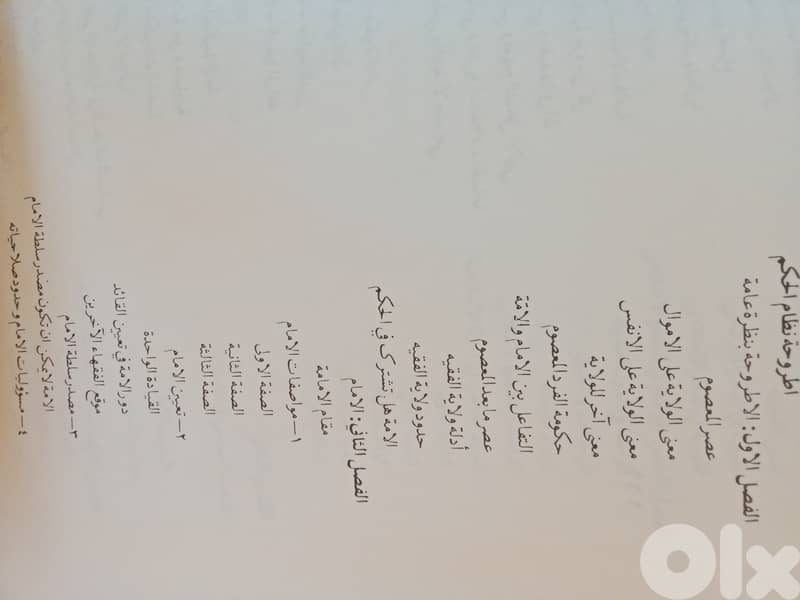 اطروحة نظام الحكم
الفصل الاول: الاطروحة بنظرة عامة
عصر المعصوم
معنى الولاية على الاموال
معنى الولاية على الانفس
معنى آخر للولاية
حكومة الفرد المعصوم
التفاعل بين الامام والامّة
عصر ما بعد المعصوم
أدلة ولاية الفقيه
حدود ولاية الفقيه
الامة هل تشترك في الحكم
الفصل الثاني: الامام
مقام الامامة
١ – مواصفات الامام
الصفة الاولى
الصفة الثانية
الصفة الثالثة
٢ – تعيين الامام
القيادة الواحدة
دور الامة في تعيين القائد
موقع الفقهاء الآخرين
٣ – مصدر سلطة الامام
الامة لا يمكن ان تكون مصدر سلطة الامام
٤ – مسؤوليات الامام وحدود صلاحياته
Olx